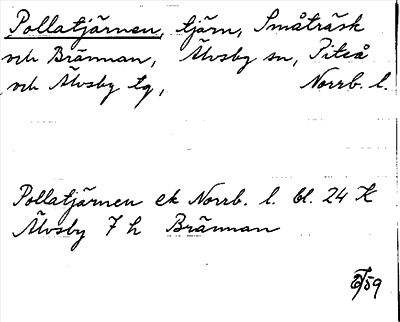 Pollatjärnen, tjärn, Småträsk
och Brännan, Älvsby sn, Piteå
och Älvsby tg, Norrb. l.
Pollatjärnen ek Norrb. l. bl. 24 K
Älvsby 7 h Brännan
/59